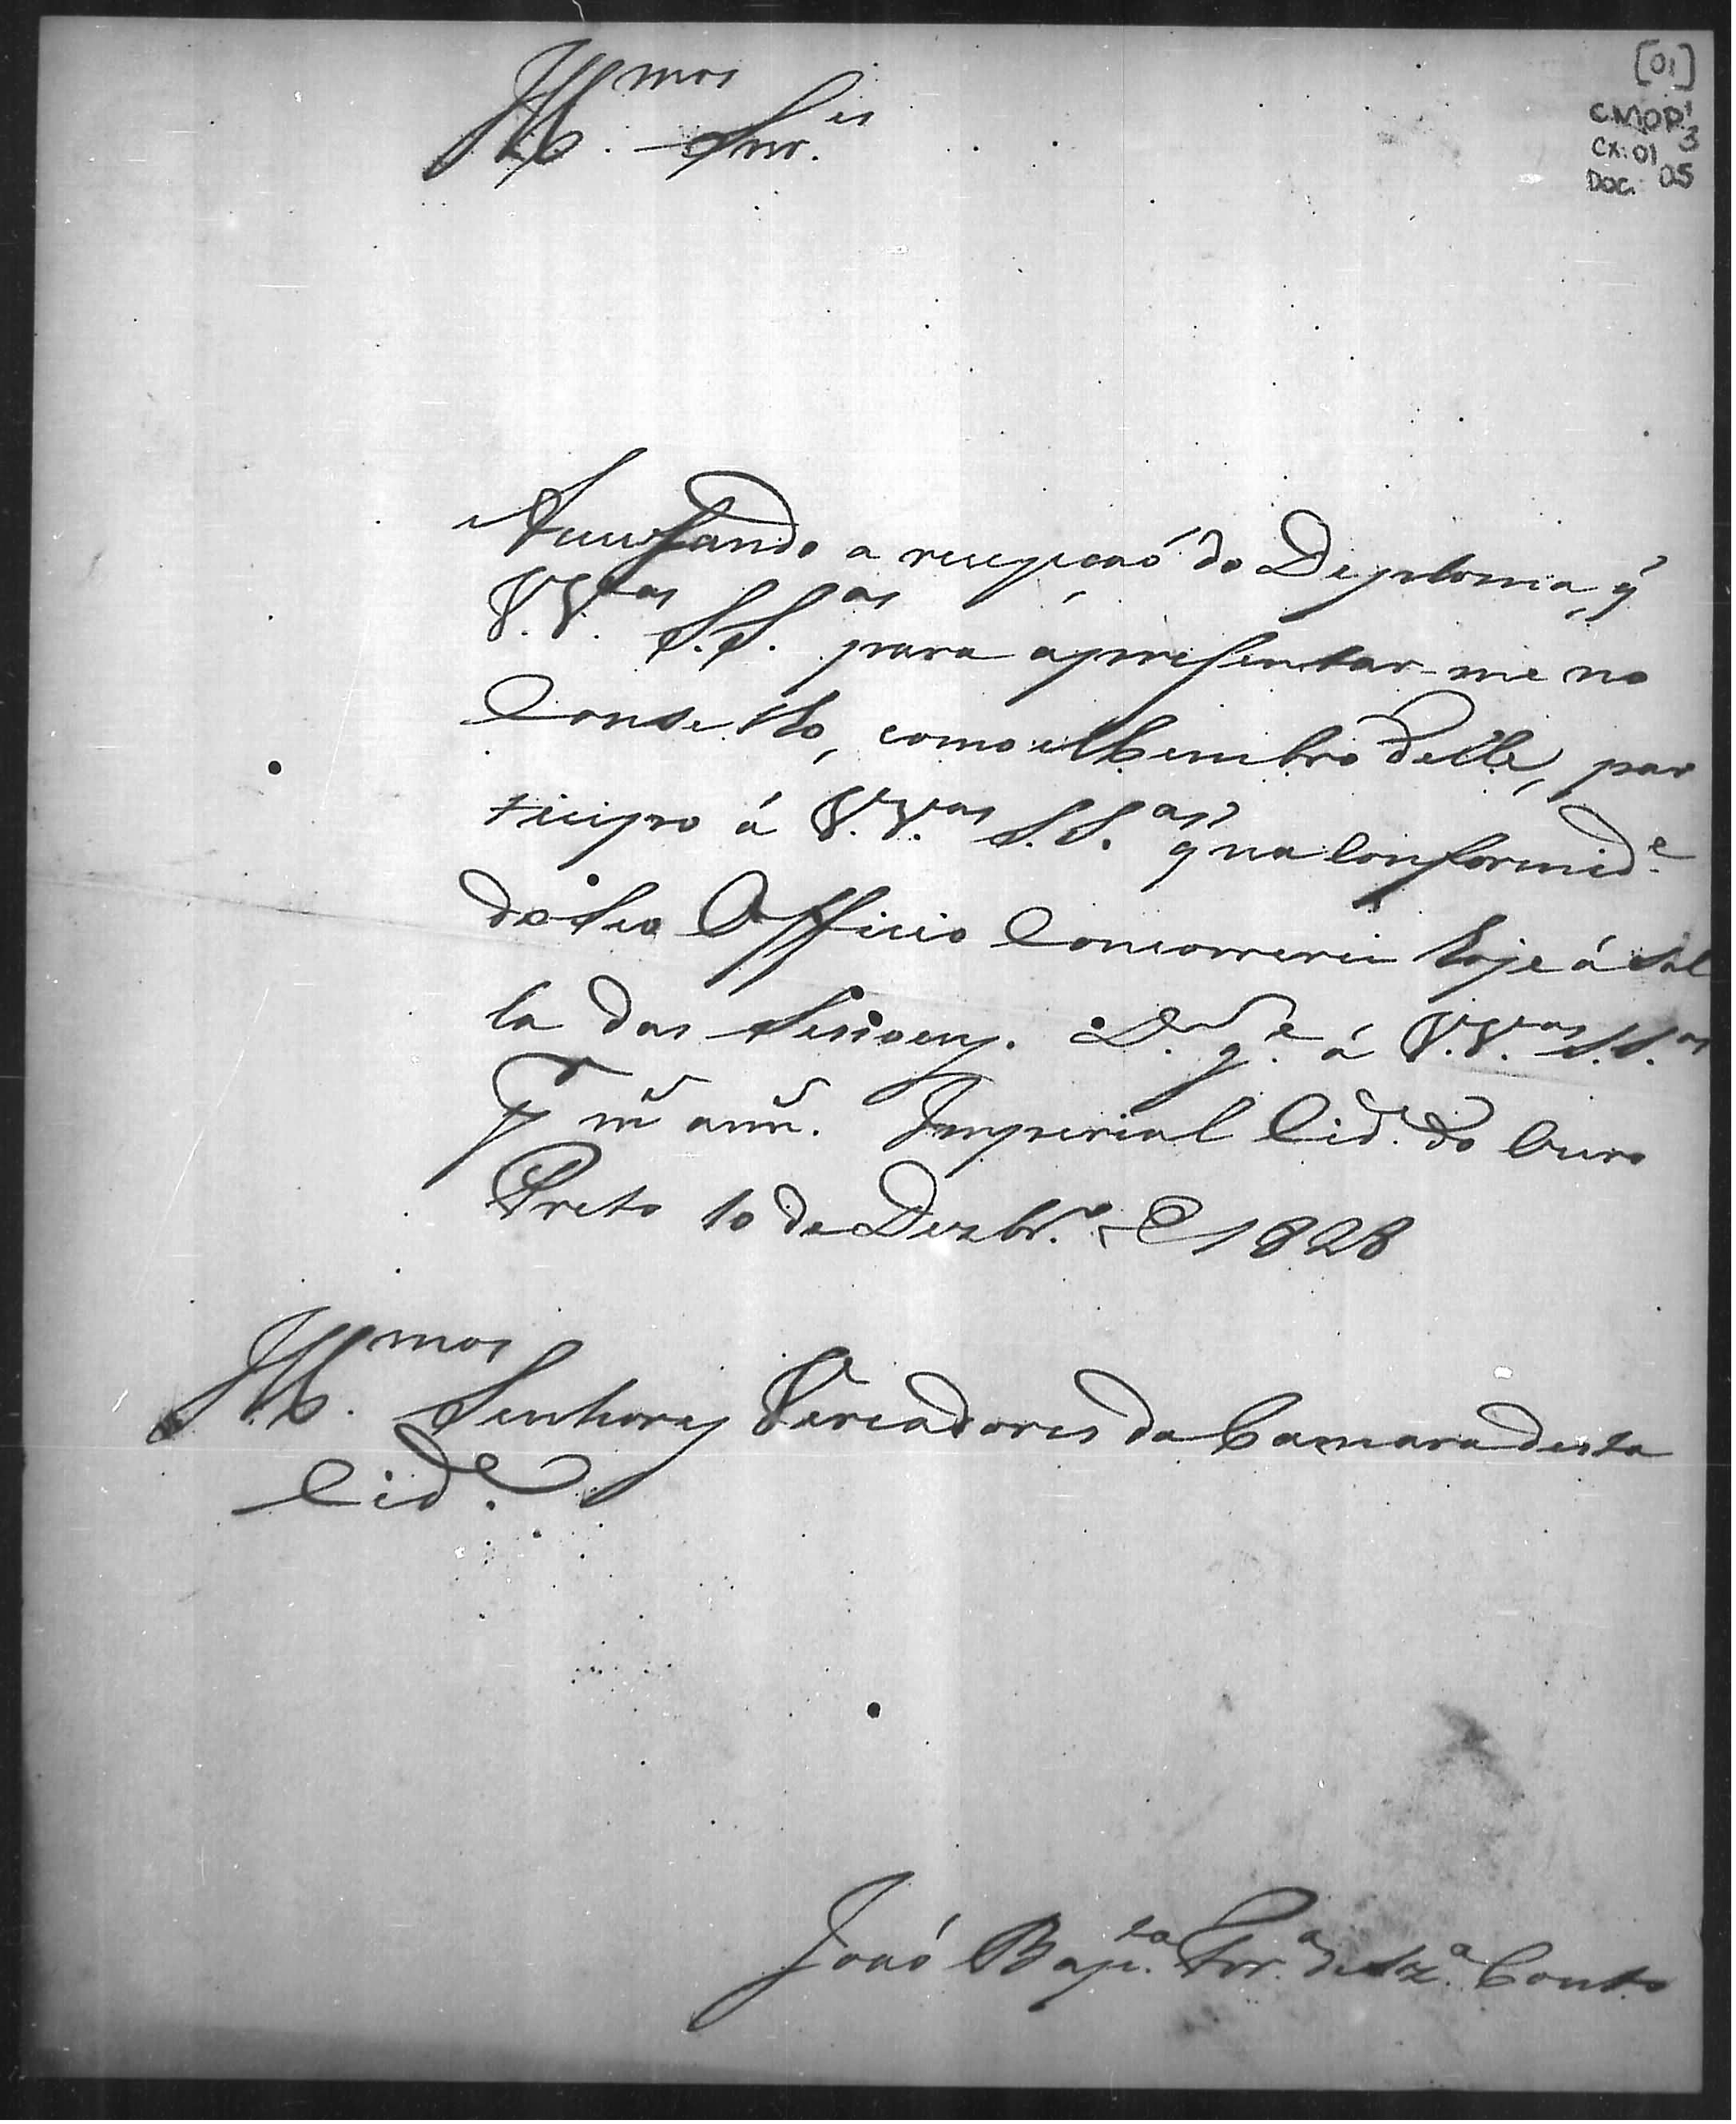 [01]
CMOP 1/3
CX: 01
DOC. 05
Ill.mos Snr.es
Accusando a recepçaó do Deploma, q̃
V.V.as S.S.as para apresentar-me no
Conselho, como Membro delle, par
ticipo á V.V.as S.S.as q̃ na Conformid.e
do seo Officio Concorrerei hoje á Sal
la das Sessoens. D.s g.e á V.V.as S.S.as
p.r m.s ann.s Imperial Cid.e do Ouro
Preto 10 de Dezbr.o de 1828
Ill.mos Senhores Vereadores da Camara desta
Cid.e
Joaó Bap.ta Frr.a de Sz.a Couto